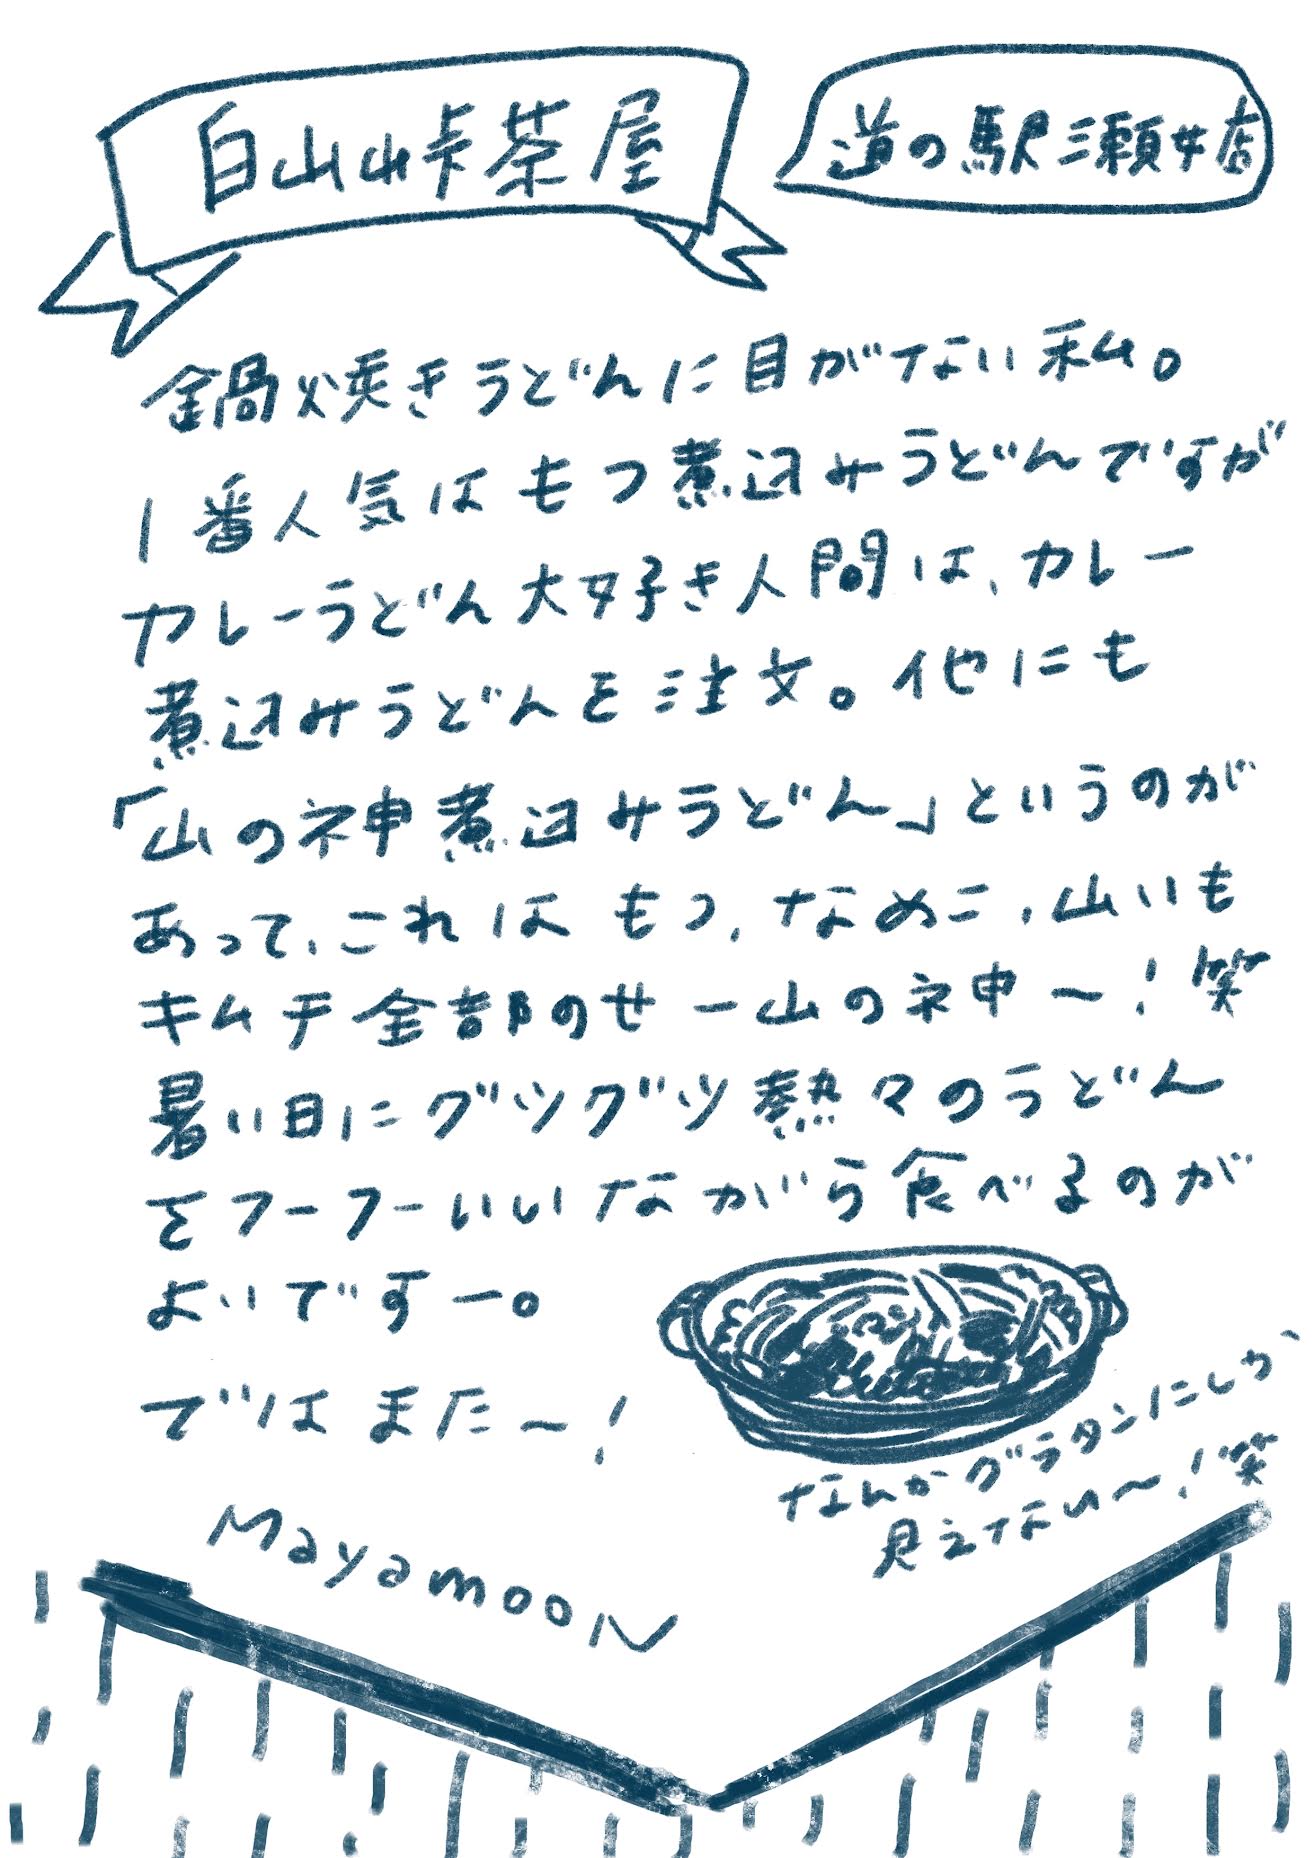 白山峠茶屋
道の駅三瀬井店
鍋焼きうどんに目がない私。
1番人気はもつ煮込みうどんですが
カレーうどん大好き人間は、カレー
煮込みうどんを注文。他にも
「山の神煮込みうどん」というのが
あって、これはもつ、なめこ、山いも
キムチ全部のせー山の神〜!笑
暑い日にグツグツ熱々のうどん
をフーフーいいながら食べるのが
よいですー。
ではまた〜!
なんかグラタンにしか
見えない〜!笑
Mayamoon